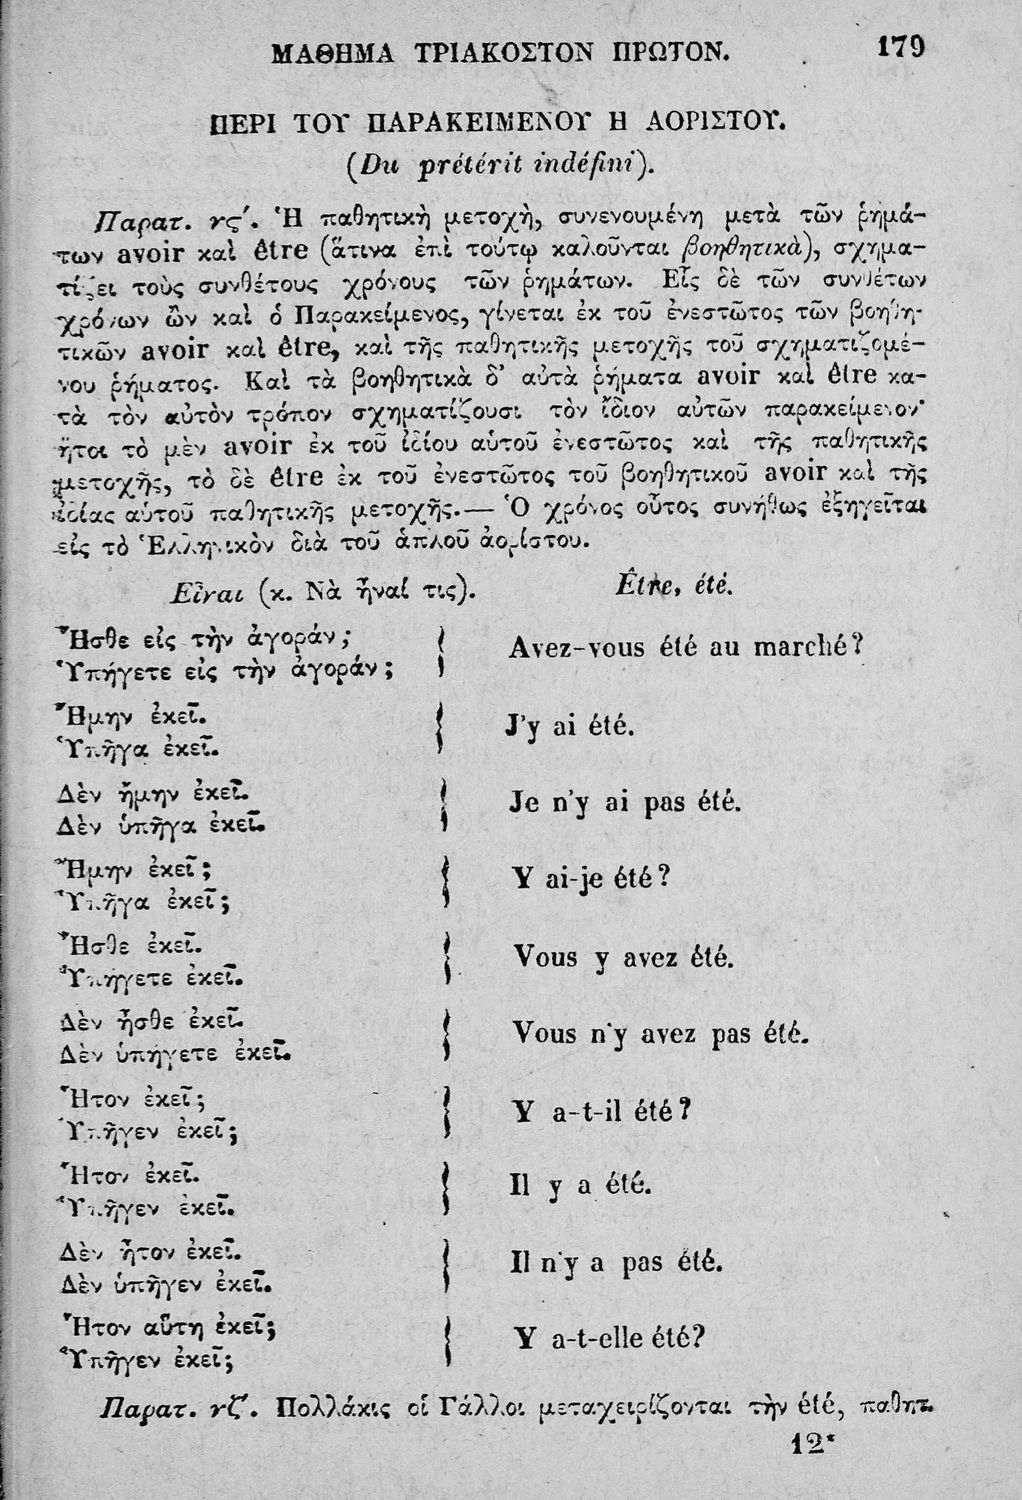 ΜΑΘΗΜΑ ΤΡΙΑΚΟΣΤΟΝ ΠΡΩΤΟΝ. 179
ΠΕΡΙ ΤΟΥ ΠΑΡΑΚΕΙΜΕΝΟΥ Η ΑΟΡΙΣΤΟΥ.
(Du prétérit indéfini).
Παρατ. νς΄. Ἡ παθητικὴ μετοχὴ, συνενουμένη μετὰ τῶν ῥημά-
των avoir καὶ être (ἅτινα ἐπὶ τούτῳ καλοῦνται βοηθητικὰ), σχημα-
τίζει τοὺς συνθέτους χρόνους τῶν ῥημάτων. Εἷς δὲ τῶν συνθέτων
χρόνων ὧν καὶ ὁ Παρακείμενος, γίνεται ἐκ τοῦ ἐνεστῶτος τῶν βοηθη-
τικῶν avoir καὶ être, καὶ τῆς παθητικῆς μετοχῆς τοῦ σχηματιζομέ-
νου ῥήματος. Καὶ τὰ βοηθητικὰ δ' αὐτὰ ῥήματα avoir καὶ être κα-
τὰ τὸν αὐτὸν τρόπον σχηματίζουσι τὸν ἴδιον αὐτῶν παρακείμενον·
ἤτοι τὸ μὲν avoir ἐκ τοῦ ἰδίου αὑτοῦ ἐνεστῶτος καὶ τῆς παθητικῆς
μετοχῆς, τὸ δὲ être ἐκ τοῦ ἐνεστῶτος τοῦ βοηθητικοῦ avoir καὶ τῆς
ἰδίας αὑτοῦ παθητικῆς μετοχῆς.— Ὁ χρόνος οὗτος συνήθως ἐξηγεῖται
εἰς τὸ Ἑλληνικὸν διὰ τοῦ ἁπλοῦ ἀορίστου.
Εἶναι (κ. Νὰ ἦναί τις). Être, été.
Ἦσθε εἰς τὴν ἀγοράν;
Ὑπήγετε εἰς τὴν ἀγοράν; } Avez-vous été au marché?
Ἤμην ἐκεῖ.
Ὑπῆγα ἐκεῖ. } J'y ai été.
Δὲν ἤμην ἐκεῖ.
Δὲν ὑπῆγα ἐκεῖ. } Je n'y ai pas été.
Ἤμην ἐκεῖ;
Ὑπῆγα ἐκεῖ; } Y ai-je été?
Ἦσθε ἐκεῖ.
Ὑπήγετε ἐκεῖ. } Vous y avez été.
Δὲν ἦσθε ἐκεῖ.
Δὲν ὑπήγετε ἐκεῖ. } Vous n'y avez pas été.
Ἦτον ἐκεῖ;
Ὑπῆγεν ἐκεῖ; } Y a-t-il été?
Ἦτον ἐκεῖ.
Ὑπῆγεν ἐκεῖ. } Il y a été.
Δὲν ἦτον ἐκεῖ.
Δὲν ὑπῆγεν ἐκεῖ. } Il n'y a pas été.
Ἦτον αὕτη ἐκεῖ;
Ὑπῆγεν ἐκεῖ; } Y a-t-elle été?
Παρατ. νζ΄. Πολλάκις οἱ Γάλλοι μεταχειρίζονται τὴν été, παθητ.
12*